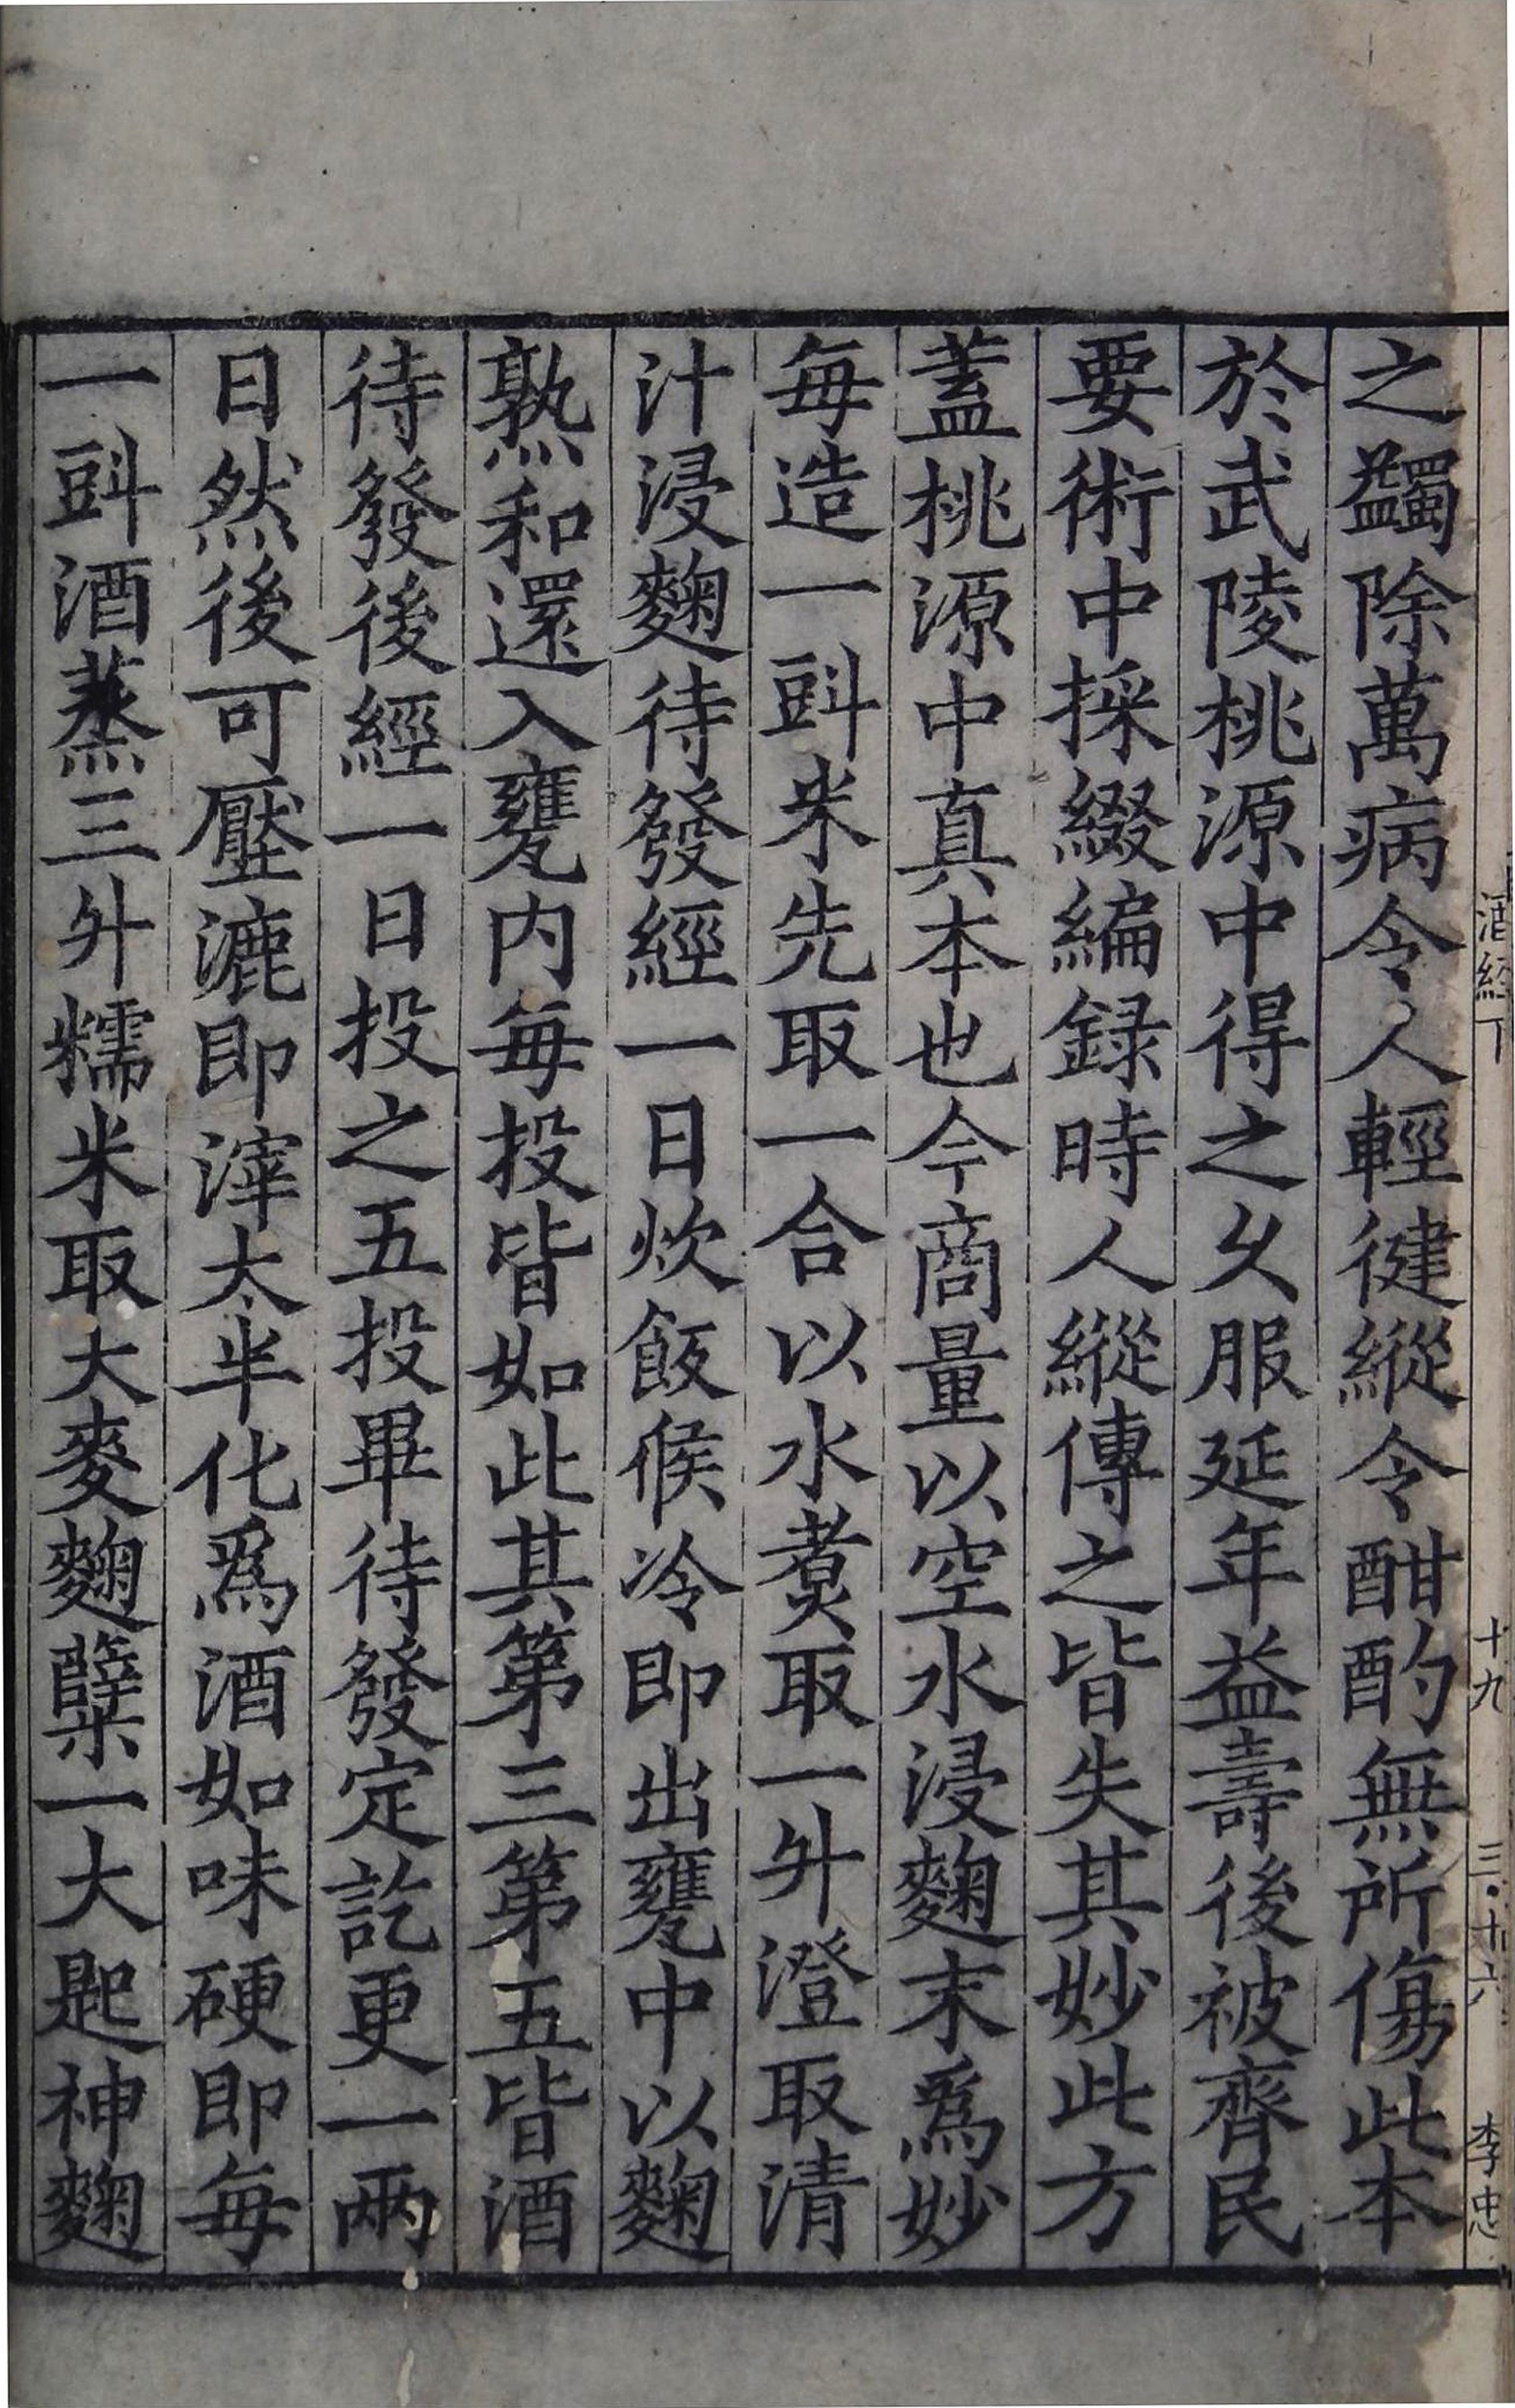 酒經下
十九
三·十六
李忠
之蠲除萬病令人輕健縱令酣酌無所傷此本
於武陵桃源中得之乆服延年益壽後被齊民
要術中採綴編録時人縱傳之皆失其妙此方
蓋桃源中真本也今商量以空水浸麴末爲妙
每造一㪷米先取一合以水煑取一升澄取清
汁浸麴待發經一日炊飯候冷即出甕中以麴
熟和還入甕内每投皆如此其第三第五皆酒
待發後經一日投之五投畢待發定訖更一兩
日然後可壓漉即滓太半化爲酒如味硬即每
一㪷酒蒸三升糯米取大麥麴糱一大匙神麴